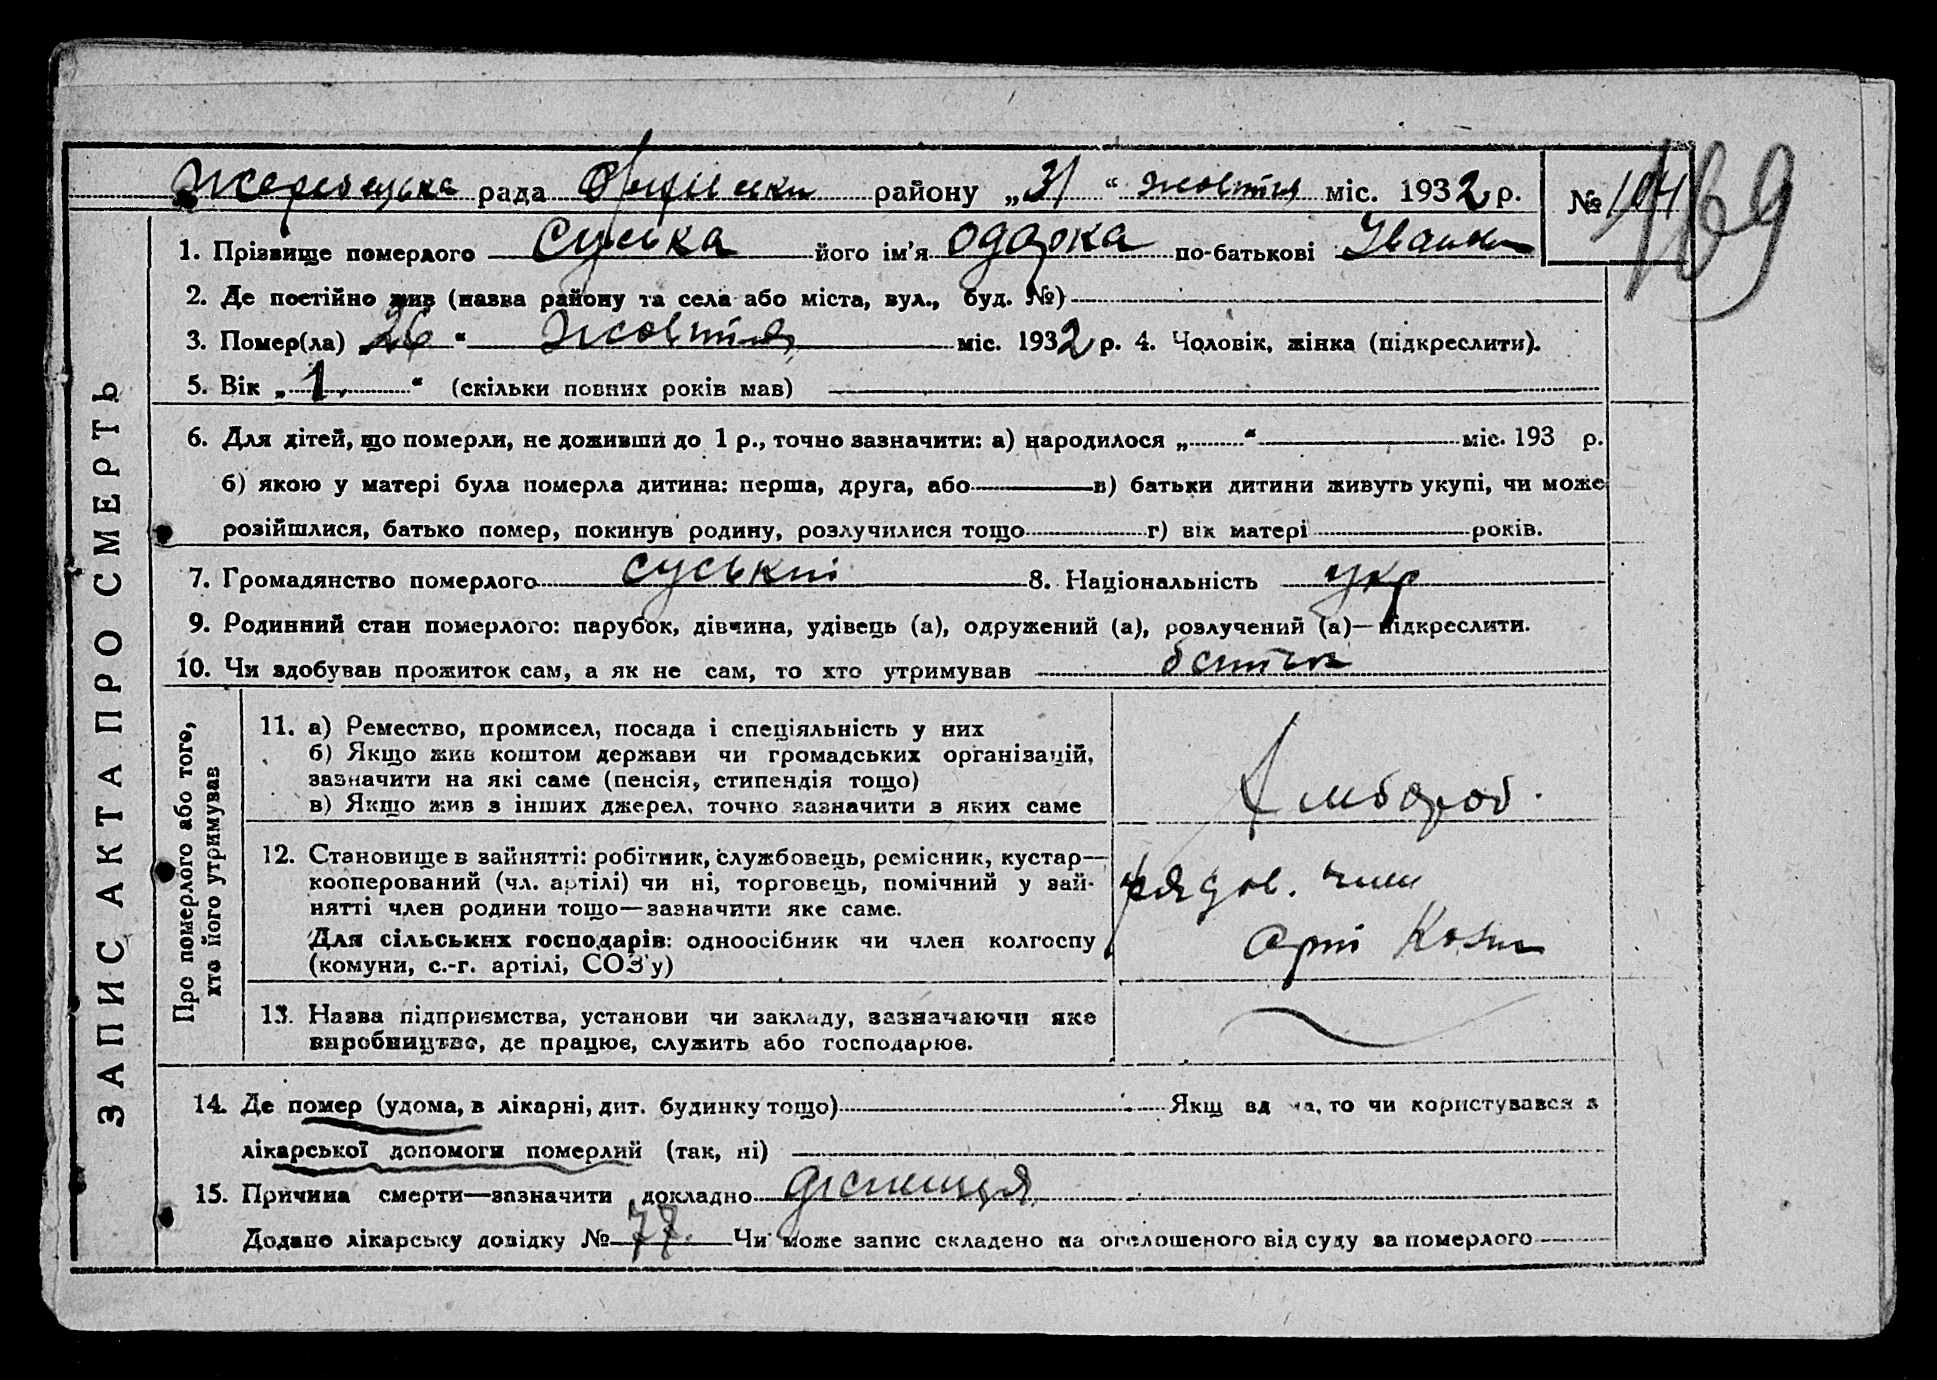 Жеребецька рада Оріхівськ району „31“ жовтня міс. 1932 р. № 104
169
1. Прізвище померлого Суська його ім'я Одарка по-батькові Іванів
2. Де постійно жив (назва району та села або міста, вул., буд. №)
3. Помер(ла) 26 “ жовтня міс. 1932 р. 4. Чоловік, жінка (підкреслити).
5. Вік „ 1 “ (скільки повних років мав)
6. Для дітей, що померли, не доживши до 1 р., точно зазначити: а) народилося „ “ міс. 193 р.
б) якою у матері була померла дитина: перша, друга, або в) батьки дитини живуть укупі, чи може
розійшлися, батько помер, покинув родину, розлучилися тощо г) вік матері років.
7. Громадянство померлого суський 8. Національність укр
9. Родинний стан померлого: парубок, дівчина, удівець (а), одружений (а), розлучений (а)—підкреслити.
10. Чи здобував прожиток сам, а як не сам, то хто утримував батьки
ЗАПИС АКТА ПРО СМЕРТЬ
Про померлого або того,
хто його утримував
11. а) Ремество, промисел, посада і спеціяльність у них
б) Якщо жив коштом держави чи громадських організацій,
зазначити на які саме (пенсія, стипендія тощо)
в) Якщо жив з інших джерел, точно зазначити з яких саме
хлібороб.
12. Становище в зайнятті: робітник, службовець, ремісник, кустар—
кооперований (чл. артілі) чи ні, торговець, помічний у зай-
нятті член родини тощо—зазначити яке саме.
Для сільських господарів: одноосібник чи член колгоспу
(комуни, с.-г. артілі, СОЗ'у)
рядов. член
арті
13. Назва підприємства, установи чи закладу, зазначаючи яке
виробництво, де працює, служить або господарює.
14. Де помер (удома, в лікарні, дит. будинку тощо) Якщ вд ма, то чи користувався з
лікарської допомоги померлий (так, ні)
15. Причина смерти—зазначити докладно діспепція
Додано лікарську довідку № 77. Чи може запис складено на оголошеного від суду за померлого